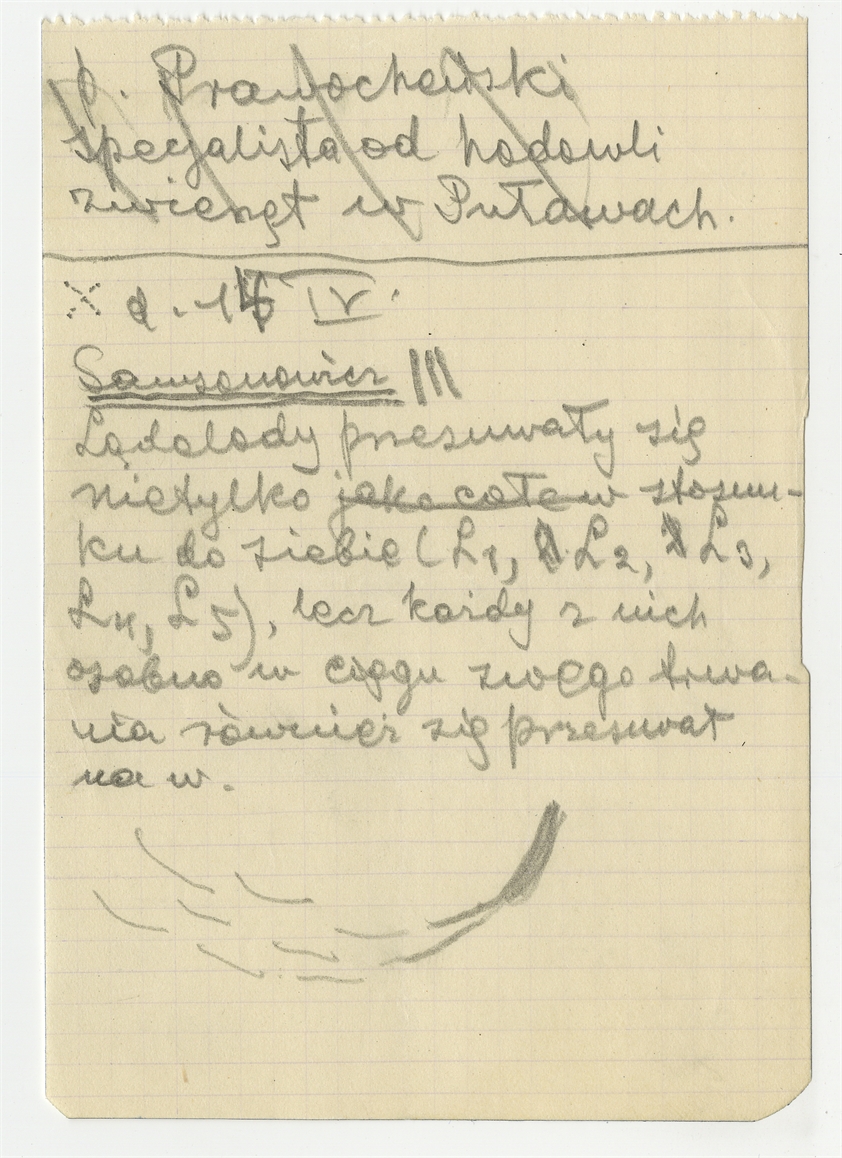 p. Prawocheński
specjalista od hodowli
zwierząt w Puławach.
d. 16 IV.
Samsonowicz |||
Lądolody przesuwały się
nietylko jako całe w stosun-
ku do siebie (L1, L2, L3,
L4, L5), lecz każdy z nich
osobno w ciągu swego trwa-
nia również się przesuwał
na w.